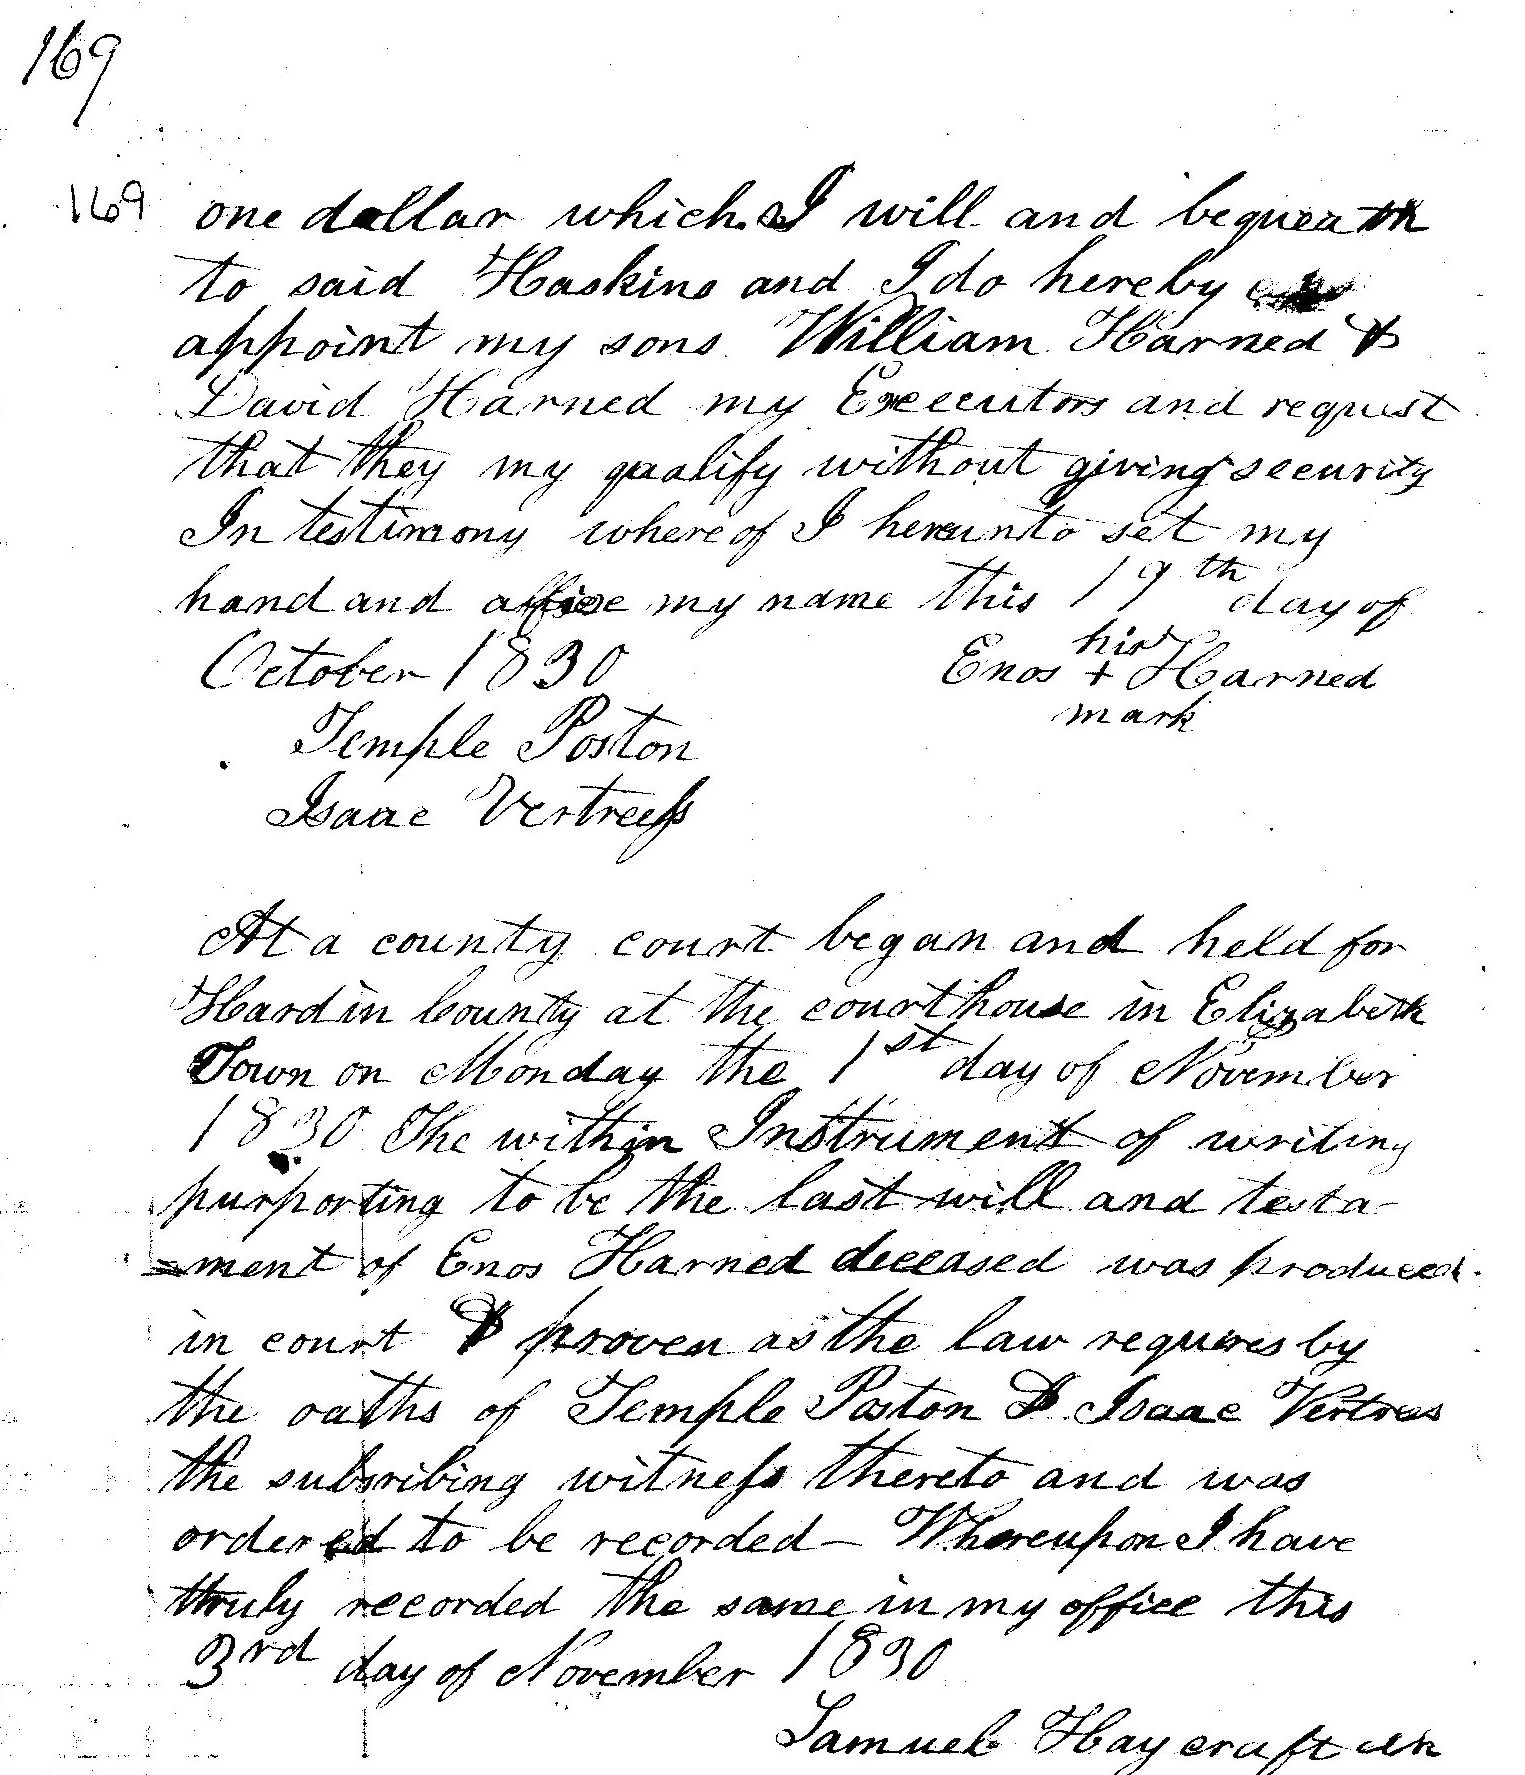 169
169 one dollar which I will and bequeath
to said Haskins and I do hereby
appoint my sons William Harned &
David Harned my Executors and request
that they my qualify without giving security
In testimony where of I hereunto set my
hand and affixe my name this 19th day of
October 1830
his
Enos + Harned
mark
Temple Poston
Isaac Vertreess
At a county court began and held for
Hardin County at the courthouse in Elizabeth
Town on Monday the 1st day of November
1830 The within Instrument of writing
purporting to be the last will and testa-
=ment of Enos Harned deceased was produced
in court & proven as the law requires by
the oaths of Temple Poston & Isaac Vertress
the subsribing witness thereto and was
ordered to be recorded - Whereupon I have
truly recorded the same in my office this
3rd day of November 1830
Samuel Haycraft clk